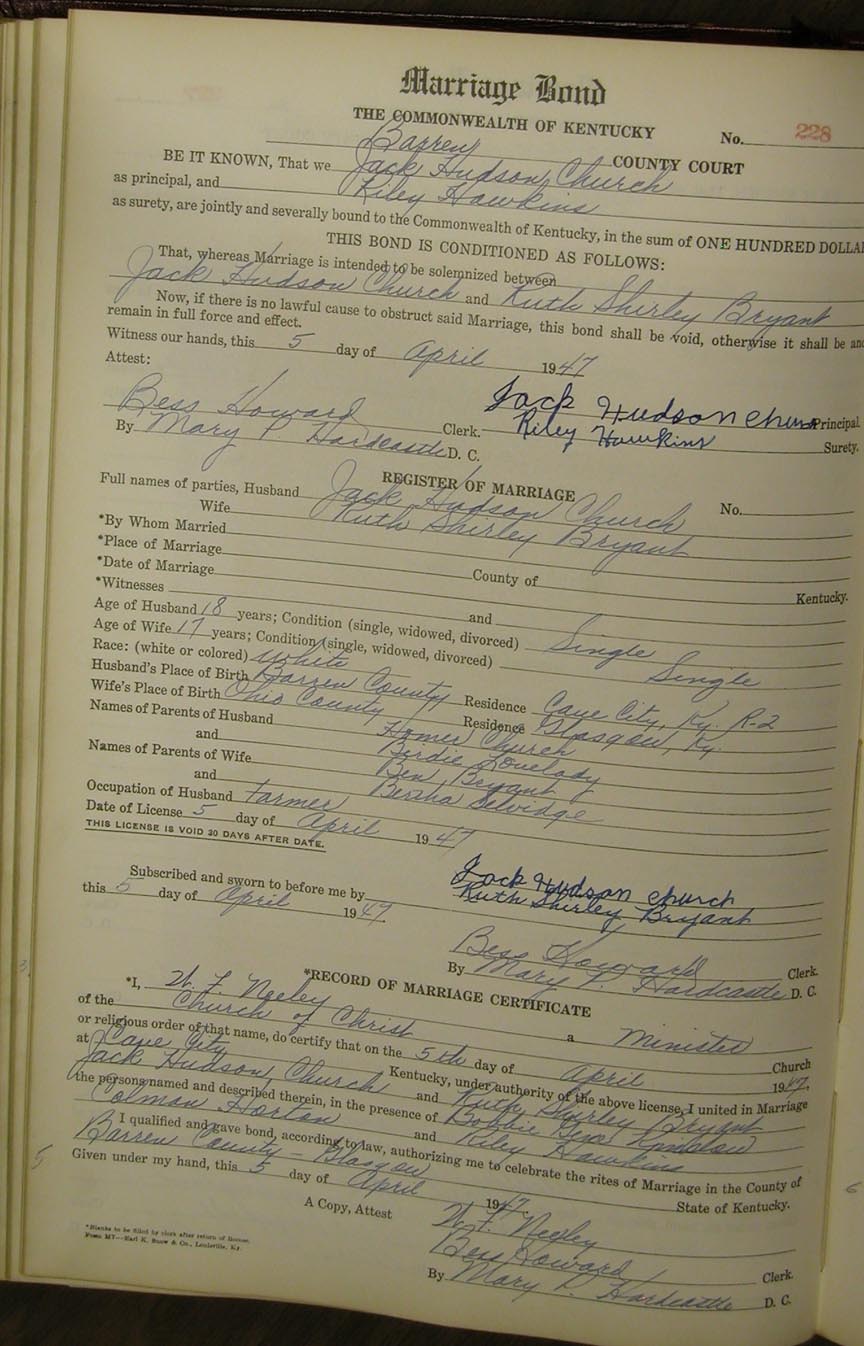 Marriage Bond
THE COMMONWEALTH OF KENTUCKY
No. 228
Barren COUNTY COURT
BE IT KNOWN, That we Jack Hudson Church
as principal, and Riley Hawkins
as surety, are jointly and severally bound to the Commonwealth of Kentucky, in the sum of ONE HUNDRED DOLLA
THIS BOND IS CONDITIONED AS FOLLOWS:
That, whereas Marriage is intended to be solemnized between
Jack Hudson Church and Ruth Shirley Bryant
Now, if there is no lawful cause to obstruct said Marriage, this bond shall be void, otherwise it shall be and
remain in full force and effect.
Witness our hands, this 5 day of April 1947
Attest:
Jack Hudson Church Principal.
Bess Howard Clerk. Riley Hawkins Surety.
By Mary P. Hardcastle D. C.
REGISTER OF MARRIAGE
Full names of parties, Husband Jack Hudson Church No.
Wife Ruth Shirley Bryant
*By Whom Married
*Place of Marriage County of Kentucky.
*Date of Marriage
*Witnesses and
Age of Husband 18 years; Condition (single, widowed, divorced) Single
Age of Wife 17 years; Condition (single, widowed, divorced) Single
Race: (white or colored) White
Husband's Place of Birth Barren County Residence Cave City, Ky. R-2
Wife's Place of Birth Ohio County Residence Glasgow, Ky.
Names of Parents of Husband Homer Church
and Birdie Lovelady
Names of Parents of Wife Ben Bryant
and Bertha Selvidge
Occupation of Husband Farmer
Date of License 5 day of April 1947
THIS LICENSE IS VOID 30 DAYS AFTER DATE.
Subscribed and sworn to before me by Jack Hudson Church
this 5 day of April 1947 Ruth Shirley Bryant
Bess Howard Clerk.
By Mary P. Hardcastle D. C.
*RECORD OF MARRIAGE CERTIFICATE
*I, W. F. Neeley a Minister
of the Church of Christ Church
or religious order of that name, do certify that on the 5th day of April 1947,
at Cave City Kentucky, under authority of the above license, I united in Marriage
Jack Hudson Church and Ruth Shirley Bryant
the persons named and described therein, in the presence of Bobbie
Colman Horton and Riley Hawkins
I qualified and gave bond, according to law, authorizing me to celebrate the rites of Marriage in the County of
Barren County - Glasgow State of Kentucky.
Given under my hand, this 5 day of April 1947.
W. F. Neeley
A Copy, Attest Bess Howard Clerk.
By Mary P. Hardcastle D. C.
*Blanks to be filled by clerk after return of license.